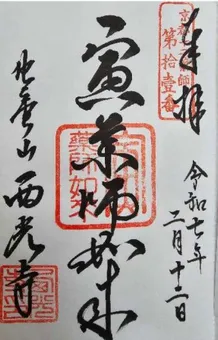 奉拝
京都十二薬師
第拾壹番
令和七年
二月十二日
寅薬師如来
山 西光寺